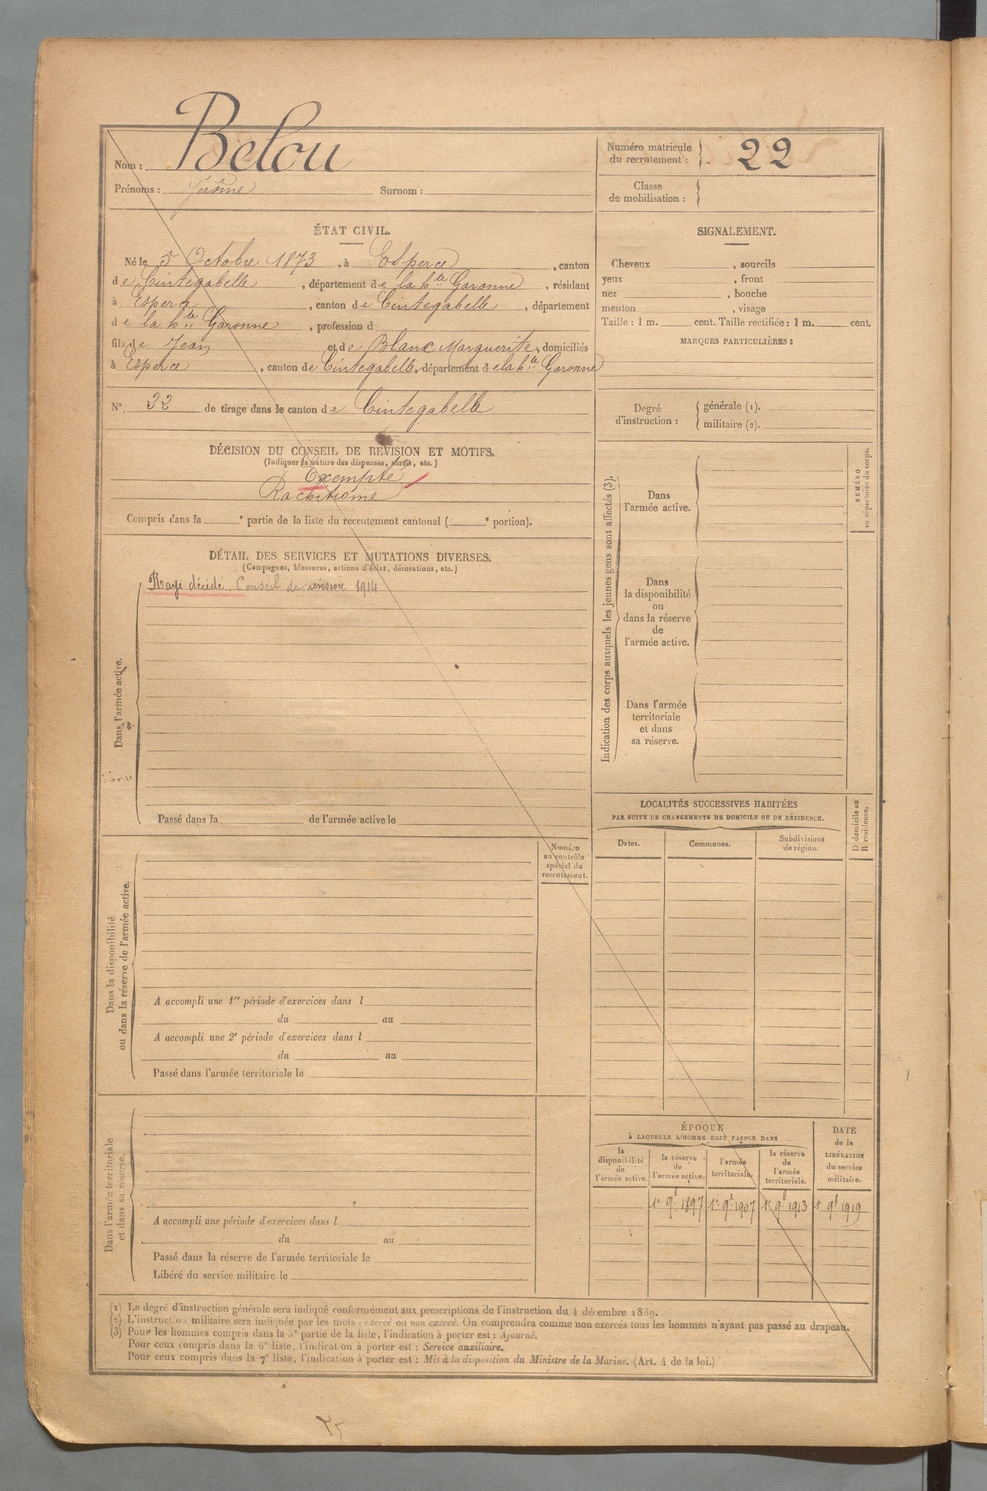 Nom : Belou
Prénoms : Jérôme Surnom :
Numéro matricule du recrutement : 22
Classe de mobilisation :
ÉTAT CIVIL.
Né le 5 Octobre 1873, à Esperce, canton
de Cintegabelle, département de la hte Garonne, résidant
à Esperce, canton de Cintegabelle, département
de la hte Garonne, profession d
fils de Jean et de Blanc Marguerite, domiciliés
à Esperce, canton de Cintegabelle, département de la hte Garonne
N° 32 de tirage dans le canton de Cintegabelle
DÉCISION DU CONSEIL DE RÉVISION ET MOTIFS.
(Indiquer la nature des dispenses, sursis, etc.)
Exempté
Rachitisme
Compris dans la e partie de la liste du recrutement cantonal ( e portion).
DÉTAIL DES SERVICES ET MUTATIONS DIVERSES.
(Campagnes, blessures, actions d'éclat, décorations, etc.)
Rayé décédé. Conseil de révision 1914
Dans l'armée active.
Passé dans la de l'armée active le
Numéro
au contrôle
spécial du
recrutement.
Dans la disponibilité
ou dans la réserve de l'armée active.
A accompli une 1re période d'exercices dans l
du au
A accompli une 2e période d'exercices dans l
du au
Passé dans l'armée territoriale le
Dans l'armée territoriale
et dans sa réserve.
A accompli une période d'exercices dans l
du au
Passé dans la réserve de l'armée territoriale le
Libéré du service militaire le
SIGNALEMENT.
Cheveux , sourcils
yeux , front
nez , bouche
menton , visage
Taille : 1 m. cent. Taille rectifiée : 1 m. cent.
MARQUES PARTICULIÈRES :
Degré
d'instruction :
générale (1).
militaire (2).
Indication des corps auxquels les jeunes gens sont affectés (3).
NUMÉRO
au répertoire du corps.
Dans
l'armée active.
Dans
la disponibilité
ou
dans la réserve
de
l'armée active.
Dans l'armée
territoriale
et dans
sa réserve.
LOCALITÉS SUCCESSIVES HABITÉES
PAR SUITE DE CHANGEMENTS DE DOMICILE OU DE RÉSIDENCE.
Dates. Communes. Subdivisions
de région.
D domicile ou
R résidence.
ÉPOQUE
À LAQUELLE L'HOMME DOIT PASSER DANS
la
disponibilité
de
l'armée active.
la réserve
de
l'armée active.
l'armée
territoriale.
la réserve
de
l'armée
territoriale.
DATE
de la
LIBÉRATION
du service
militaire.
1er 9bre 1897 1er 9bre 1907 1er 9bre 1913 1er 9bre 1919
(1) Le degré d'instruction générale sera indiqué conformément aux prescriptions de l'instruction du 4 décembre 1889.
(2) L'instruction militaire sera indiquée par les mots : exercé ou non exercé. On comprendra comme non exercés tous les hommes n'ayant pas passé au drapeau.
(3) Pour les hommes compris dans la 5e partie de la liste, l'indication à porter est : Ajourné.
Pour ceux compris dans la 6e liste, l'indication à porter est : Service auxiliaire.
Pour ceux compris dans la 7e liste, l'indication à porter est : Mis à la disposition du Ministre de la Marine. (Art. 4 de la loi.)